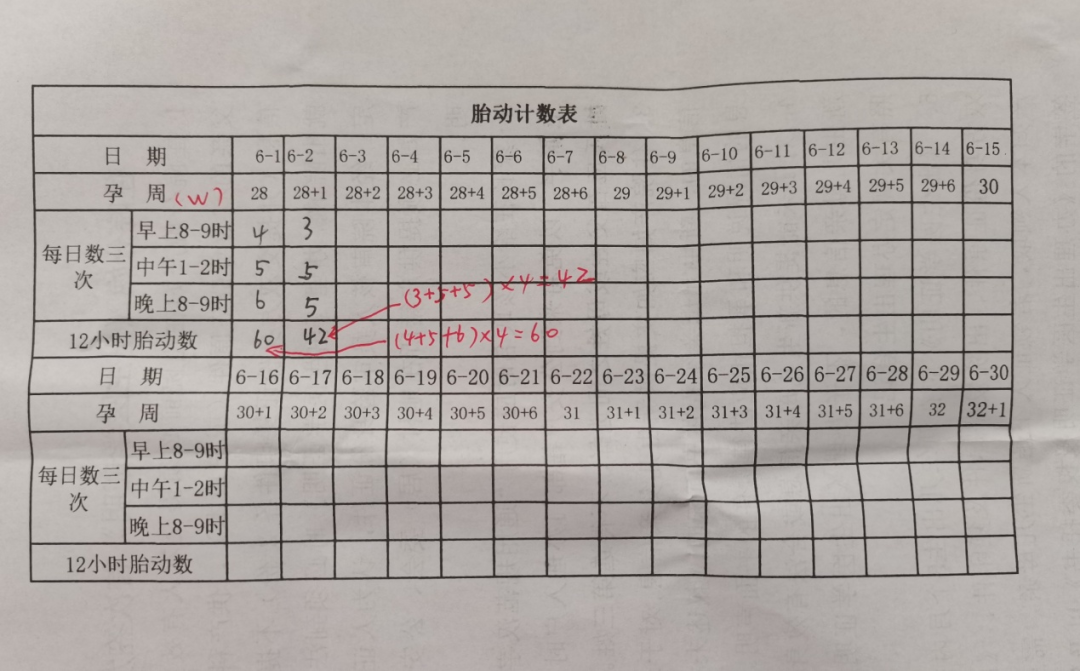 胎动计数表
日 期 6-1 6-2 6-3 6-4 6-5 6-6 6-7 6-8 6-9 6-10 6-11 6-12 6-13 6-14 6-15
孕 周(W) 28 28+1 28+2 28+3 28+4 28+5 28+6 29 29+1 29+2 29+3 29+4 29+5 29+6 30
每日数三次
早上8-9时 4 3
中午1-2时 5 5
晚上8-9时 6 5
(3+5+5)×4=42
12小时胎动数 60 42 (4+5+6)×4=60
日 期 6-16 6-17 6-18 6-19 6-20 6-21 6-22 6-23 6-24 6-25 6-26 6-27 6-28 6-29 6-30
孕 周 30+1 30+2 30+3 30+4 30+5 30+6 31 31+1 31+2 31+3 31+4 31+5 31+6 32 32+1
每日数三次
早上8-9时
中午1-2时
晚上8-9时
12小时胎动数